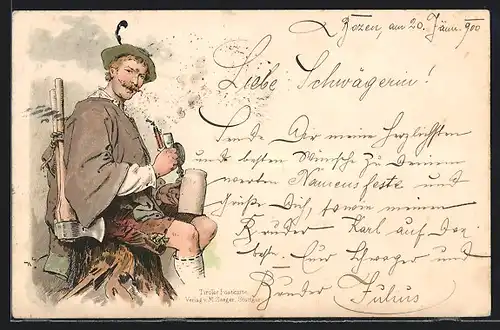 Bozen, am 20. Jänn. 900
Liebe Schwägerin!
Sende Dir meine herzlichsten
und besten Wünsche zu Deinem
werten Namensfeste und
Grüße Dich, sowie meinen
Bruder Karl auf das
beste. Euer Schwager und
Bruder Julius
Tiroler Postkarte.
Verlag v. M. Seeger, Stuttgart